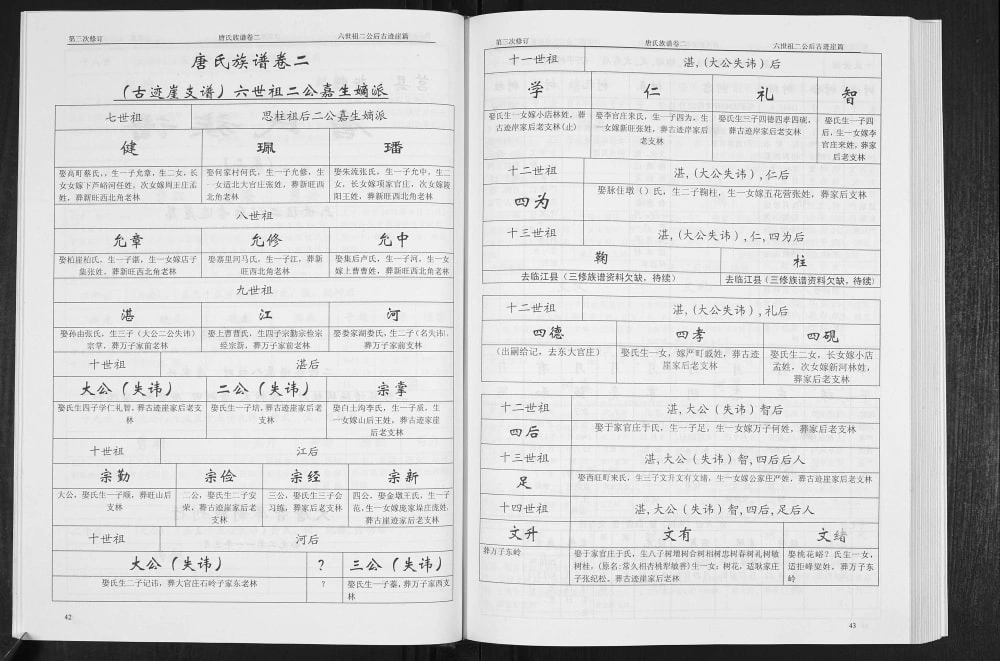 第三次修订 唐氏族谱卷二 六世祖二公后古迹崖篇
唐氏族谱卷二
（古迹崖支谱）六世祖二公嘉生嫡派
七世祖 思柱祖后二公嘉生嫡派
健 珮 璠
娶高町蔡氏，生一子允章，生二女，长
女女嫁下芦峪河任姓，次女嫁周王庄孟
姓，葬新旺西北角老林
娶何家村何氏，生一子允修，生
一女适北大官庄张姓，葬新旺西
北角老林
娶朱流张氏，生一子允中，生二
女，长女嫁项家官庄，次女嫁陵
阳王姓，葬新旺西北角老林
八世祖
允章 允修 允中
娶柏崖柏氏，生一子湛，生一女嫁店子
集张姓，葬新旺西北角老林
娶寨里河马氏，生一子江，葬新
旺西北角老林
娶集后卢氏，生一子河，生一女
嫁上曹曹姓，葬新旺西北角老林
九世祖
湛 江 河
娶孙由张氏，生三子（大公二公失讳）
宗掌，葬万子家前老林
娶上曹曹氏，生四子宗勤宗俭宗
经宗新，葬万子家前老林
娶娄家湖娄氏，生二子（名失讳），
葬万子家前支林
十世祖 湛后
大公（失讳） 二公（失讳） 宗掌
娶氏生四子学仁礼智，葬古迹崖家后老支
林
娶氏生一子培，葬古迹崖家后老
支林
娶白土沟李氏，生一子质，生
一女嫁山后王姓，葬古迹家崖
后老支林
十世祖 江后
宗勤 宗俭 宗经 宗新
大公，娶氏生一子顺，葬旺山后
支林
二公，娶氏生二子安
荣，葬古迹崖家后老
支林
三公，娶氏生三子会
习练，葬家后老支林
四公，娶金墩王氏，生一子
范，生一女嫁庞家垛庄庞姓，
葬古崖迹家后老支林
十世祖 河后
大公（失讳） ？ 三公（失讳）
娶氏生二子记讳，葬大官庄石岭子家东老林
？
娶氏生一子秦，葬万子家西支
林
42
第三次修订 唐氏族谱卷二 六世祖二公后古迹崖篇
十一世祖 湛，（大公失讳）后
学 仁 礼 智
娶氏生一女嫁小店林姓，葬
古迹岸家后老支林（止）
娶李官庄来氏，生一子四为，生
一女嫁新旺张姓，葬古迹岸家后
老支林
娶氏生三子四德四孝四砚，
葬古迹岸家后老支林
娶氏生一子四
后，生一女嫁李
官庄来姓，葬家
后老支林
十二世祖 湛，（大公失讳），仁后
四为 娶脉住墩（）氏，生二子鞠柱，生一女嫁五花营张姓，葬家后支林
十三世祖 湛，（大公失讳），仁，四为后
鞠 柱
去临江县（三修族谱资料欠缺，待续） 去临江县（三修族谱资料欠缺，待续）
十二世祖 湛，（大公失讳），礼后
四德 四孝 四砚
（出嗣给记，去东大官庄）
娶氏生一女，嫁严町戚姓，葬古迹
崖家后老支林
娶氏生二女，长女嫁小店
孟姓，次女嫁新河林姓，
葬家后老支林
十二世祖 湛，大公（失讳）智后
四后 娶于家官庄于氏，生一子足，生一女嫁万子何姓，葬家后老支林
十三世祖 湛，大公（失讳）智，四后后人
足 娶西旺町来氏，生三子文升文有文绪，生一女嫁公家庄严姓，葬古迹崖家后老支林
十四世祖 湛，大公（失讳）智，四后，足后人
文升 文有 文绪
葬万子东岭
娶于家官庄于氏，生八子树增树合树相树忠树春树礼树敏
树桂，（原名：常久相杏桃犁敏善）生一女：树花，适耿家庄
子张纪松，葬古迹崖家后老林
娶桃花峪？氏生一女，
适拒峰觉姓，葬万子东
岭
43